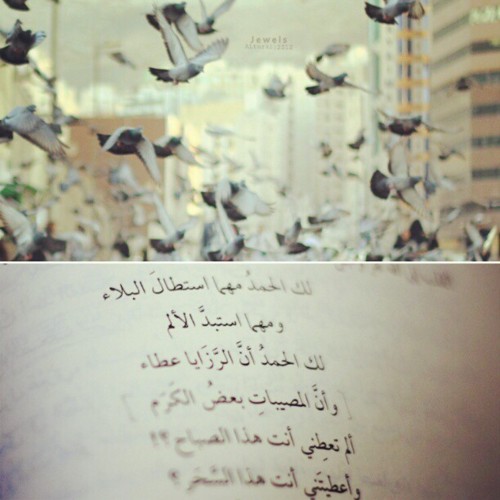 Jewels
لك الحمدُ مهما استطالَ البلاء
ومهما استبدَّ الألم
لك الحمدُ أنَّ الرَّزَايا عطاء
[ وأنَّ المصيباتِ بعضُ الكَرَم ]
ألم تعطِني أنت هذا الصباح ؟؟
وأعطيتَني أنت هذا السَّحَر ؟